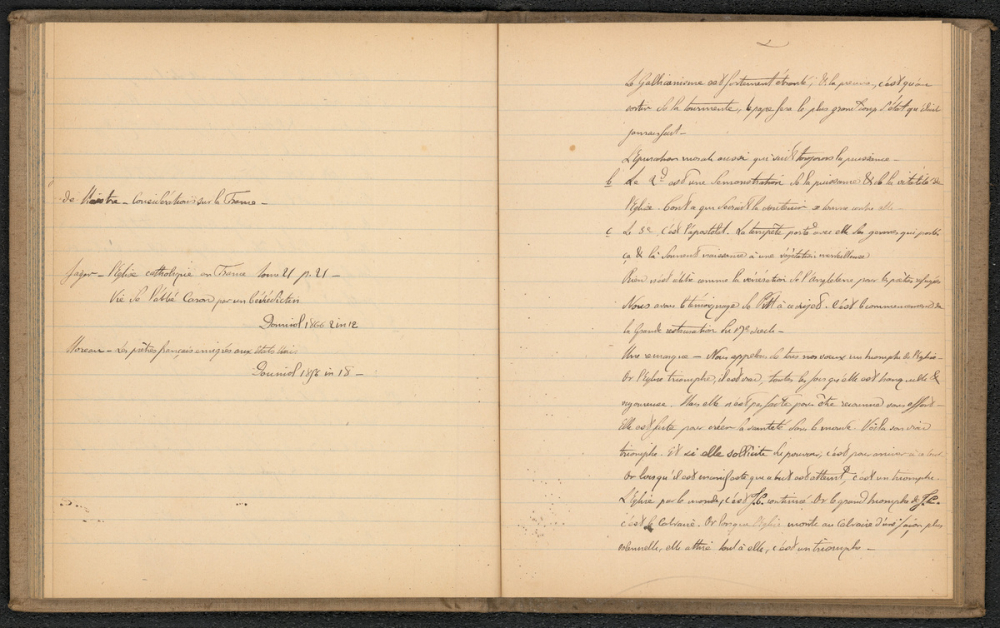 de Maistre – Considérations sur la France –
Jager – l'Église catholique en France tome 21 p. 21 –
Vie de l'abbé Caron par un bénédictin
Douniol 1866 2 in 12
Moreau – Les prêtres français émigrés aux États Unis
Douniol 1856 in 18 –
2
Le Gallicanisme est fortement ébranlé; et la preuve, c'est qu'au
sortir de la tourmente, le pape fera le plus grand coup d'état qu'il ait
jamais fait –
L'épuration morale aussi qui suit toujours la puissance –
b La 2e est une démonstration de la puissance et de la vitalité de
l'Église. C'est à qui devrait la soutenir se tourne contre elle –
c La 3e c'est l'apostolat. La tempête porte avec elle les germes qui portés
çà et là donnent naissance à une végétation merveilleuse
Rien n'est établi comme la vénération de l'Angleterre pour les prêtres réfugiés
Nous avons le témoignage de Pitt à ce sujet. C'est le commencement de
la grande restauration du 19e siècle –
Une remarque – Nous appelons de tous nos vœux un triomphe de l'Église –
Or l'Église triomphe, il est vrai, toutes les fois qu'elle est tranquille et
rayonnante. Mais elle n'est pas faite pour être reconnue sans effort –
Elle est faite pour créer la sainteté dans le monde. Voilà son vrai
triomphe. Et si elle sollicite le pouvoir, c'est pour arriver à ce but.
Or lorsqu'il est manifeste que ce but est atteint, c'est un triomphe.
L'Église par le monde, c'est J.C. continué. Or le grand triomphe de J.C.
c'est le Calvaire. Or lorsque l'Église monte au Calvaire d'une façon plus
solennelle, elle attire tout à elle, c'est un triomphe –